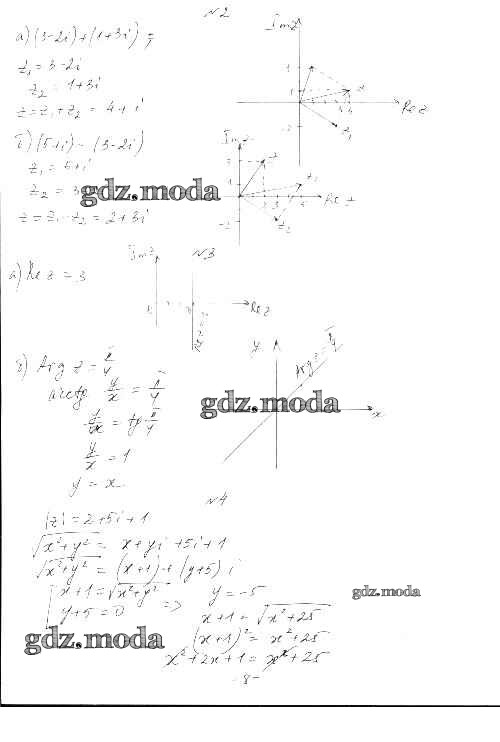 №2
а) (3-2i)+(1+3i) =
z₁ = 3-2i
z₂ = 1+3i
z = z₁+z₂ = 4+i
Im z
1
1
-2
z
z₁
Re z
б) (5+i) - (3-2i)
z₁ = 5+i
z₂ = 3
z = z₁-z₂ = 2+3i
gdz.moda
Im z
z
z₁
z₂
-2
Re z
№3
а) Re z = 3
Im z
Re z
б) Arg z = π/4
arctg y/x = π/4
y/x = tg π/4
y/x = 1
y = x
y
Arg z = π/4
x
gdz.moda
№4
|z| = 2+5i+1
√x²+y² = x+yi+5i+1
√x²+y² = (x+1)+(y+5)i
x+1 = √x²+y²
y+5 = 0
=>
y = -5
x+1 = √x²+25
(x+1)² = x²+25
x²+2x+1 = x²+25
gdz.moda
gdz.moda
-8-